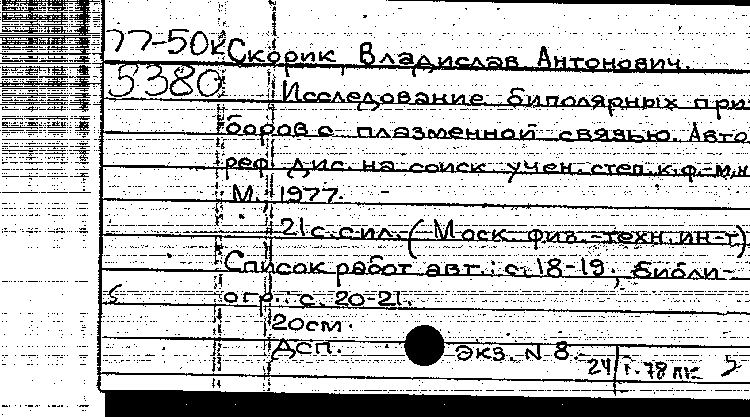 77-50к Скорик, Владислав Антонович.
5380 Исследование биполярных при
боров с плазменной связью. Авто
реф. дис. на соиск. учен. степ. к.ф.-м.н
М., 1977.
21 с. с ил. (Моск. физ.-техн. ин-т)
Список работ авт.: с. 18-19, библи-
огр.: с. 20-21.
20см.
ДСП. экз. N 8.
24/I-78